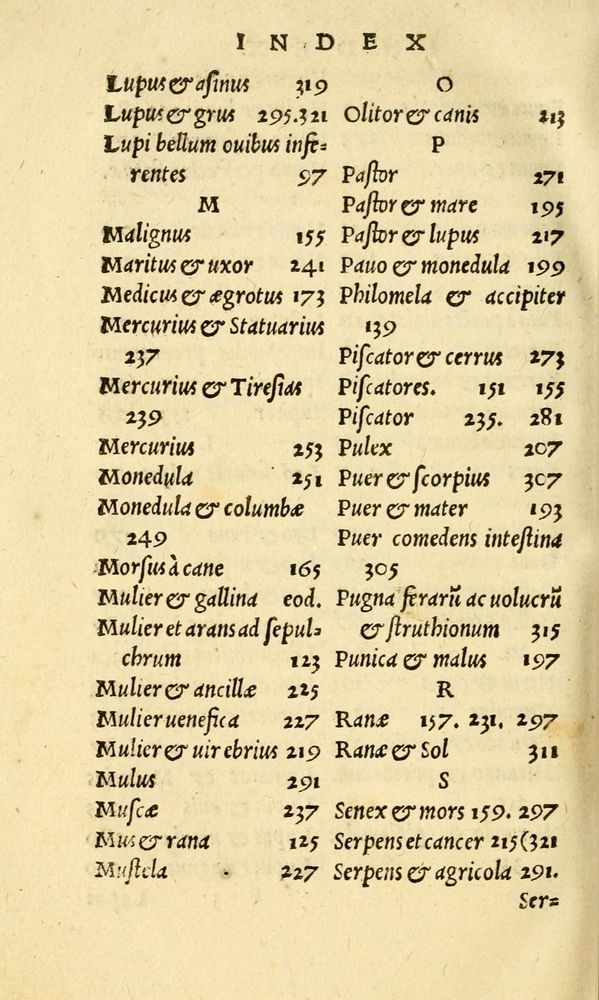 INDEX
Lupus & asinus 319
Lupus & grus 295.321
Lupi bellum ouibus infe=
rentes 97
M
Malignus 155
Maritus & uxor 241
Medicus & ægrotus 173
Mercurius & Statuarius
237
Mercurius & Tiresias
239
Mercurius 253
Monedula 251
Monedula & columbæ
249
Morsus à cane 165
Mulier & gallina eod.
Mulier et arans ad sepul=
chrum 123
Mulier & ancillæ 225
Mulier uenefica 227
Mulier & uir ebrius 219
Mulus 291
Muscæ 237
Mus & rana 125
Mustela 227
O
Olitor & canis 213
P
Pastor 271
Pastor & mare 195
Pastor & lupus 217
Pauo & monedula 199
Philomela & accipiter
139
Piscator & cerrus 273
Piscatores. 151 155
Piscator 235. 281
Pulex 207
Puer & scorpius 307
Puer & mater 193
Puer comedens intestina
305
Pugna ferarũ ac uolucrũ
& struthionum 315
Punica & malus 197
R
Ranæ 157. 231. 297
Ranæ & Sol 311
S
Senex & mors 159. 297
Serpens et cancer 215(321
Serpens & agricola 291.
Ser=